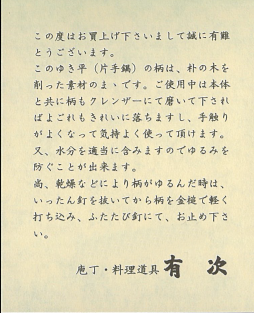 この度はお買上げ下さいまして誠に有難
とうございます。
このゆき平(片手鍋)の柄は、朴の木を
削った素材のまゝです。ご使用中は本体
と共に柄もクレンザーにて磨いて下され
ばよごれもきれいに落ちますし、手触り
がよくなって気持よく使って頂けます。
又、水分を適当に含みますのでゆるみを
防ぐことが出来ます。
尚、乾燥などにより柄がゆるんだ時は、
いったん釘を抜いてから柄を金槌で軽く
打ち込み、ふたたび釘にて、お止め下さ
い。
庖丁・料理道具 有次